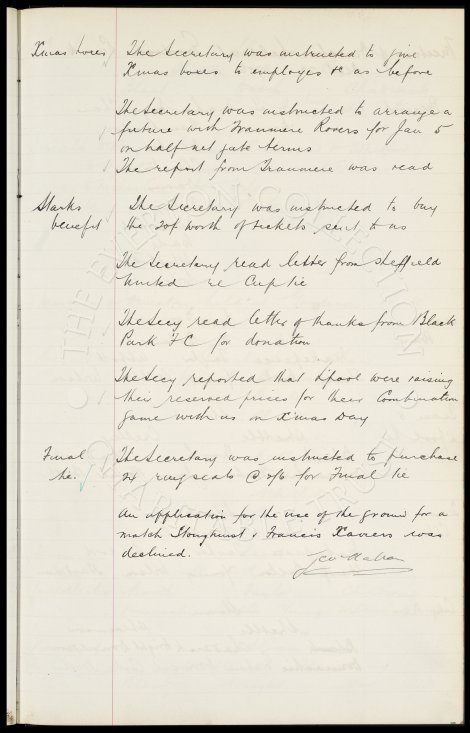 Xmas boxes The Secretary was instructed to give
Xmas boxes to employes &c as before
The Secretary was instructed to arrange a
fixture with Tranmere Rovers for Jan 5
on half net gate terms
The report from Tranmere was read
Starks The Secretary was instructed to buy
benefit the 20/- worth of tickets sent to us
The Secretary read letter from Sheffield
United re Cup tie
The Secy read letter of thanks from Black
Park FC for donation
The Secy reported that Lpool were raising
their reserved prices for their Combination
game with us on Xmas Day
Final The Secretary was instructed to purchase
tie. 24 ring seats @ 2/6 for Final tie
An application for the use of the ground for a
match Stonyhurst v Francis Xaviers was
declined.
Geo Mahon
THE EVERTON COLLECTION
CHARITABLE TRUST